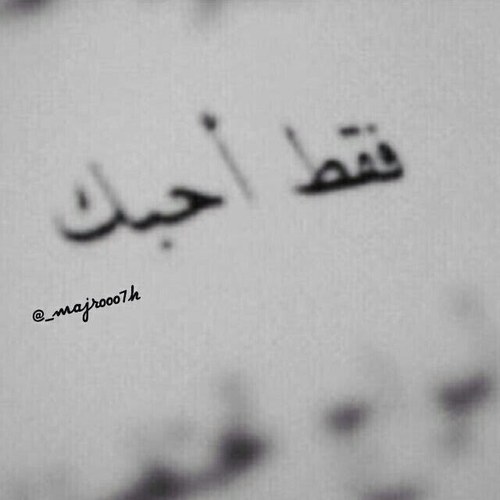 فقط أحبك
@_majrooo7h